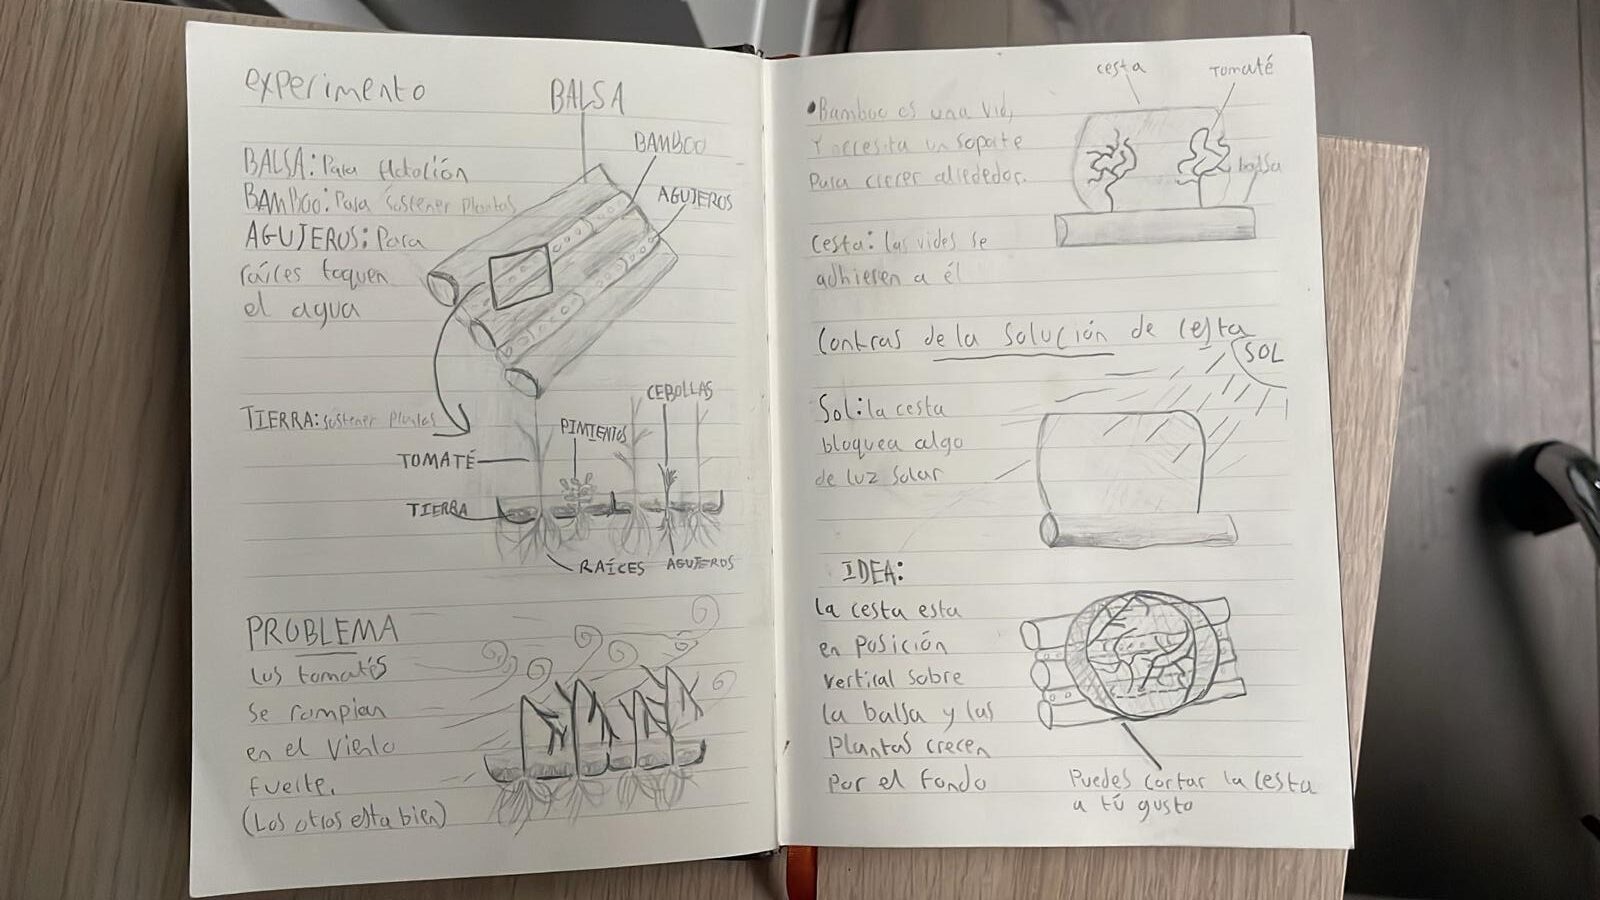 experimento
BALSA
BAMBOO
AGUJEROS
BALSA: Para flotación
BAMBOO: Para sostener plantas
AGUJEROS: Para
raíces toquen
el agua
TIERRA: sostener plantas
CEBOLLAS
PIMIENTOS
TOMATÉ
TIERRA
RAÍCES
AGUJEROS
PROBLEMA
Los tomatés
se rompian
en el viento
fuerte.
(Los otros esta bien)
cesta
Tomaté
balsa
•Bamboo es una vid,
Y necesita un soporte
Para crecer alrededor.
Cesta: las vides se
adhieren a él
Contras de la solución de cesta
SOL
Sol: la cesta
bloquea algo
de luz solar
IDEA:
La cesta esta
en posición
vertical sobre
la balsa y las
plantas crecen
por el fondo
Puedes cortar la cesta
a tú gusto